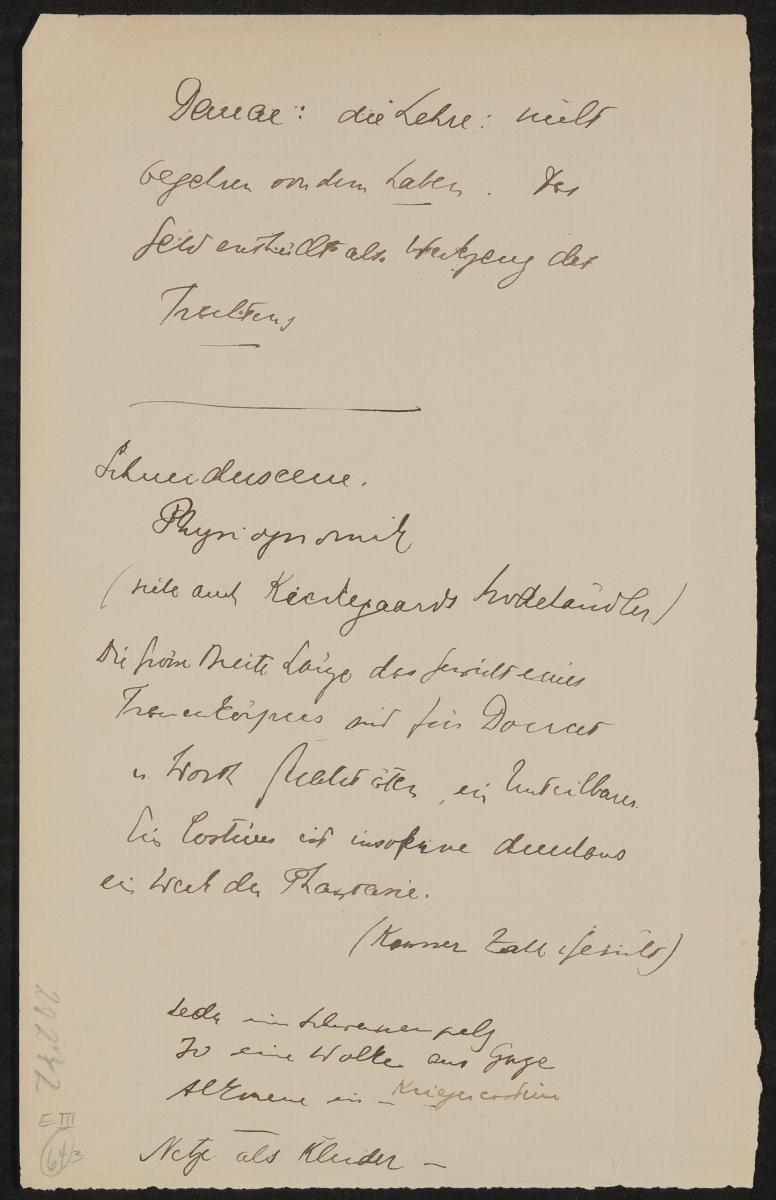 Danae: die Lehre: nicht
begehren von dem Leben. Das
Geld enthüllt als Werkzeug des
Trachtens
Schneiderscene.
Physiognomik
(siehe auch Kierkegaards Modehändler)
Die Größe Breite Länge das Gewicht eines
Frauenkörpers sind für Doucet
u. Worth Realitäten, ein Unteilbares.
Ein Costüm ist insoferne durchaus
ein Werk der Phantasie.
(Kassner Zahl u Gesicht)
Leda ein Schwanenpelz
Jo eine Wolke aus Gaze
Alkmene ein – Kriegercostüm
Netze als Kleider –
20272
E III
64/3